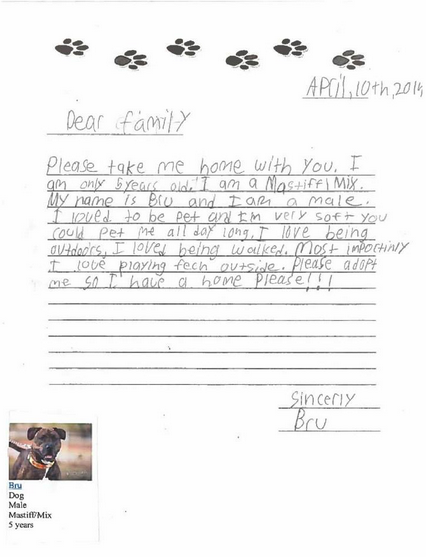 April, 10th, 2014
Dear family
Please take me home with you. I
am only 5 years old. I am a Mastiff/Mix.
My name is Bru and I am a male.
I loved to be pet and I'm very soft you
could pet me all day long. I love being
outdoors. I loved being walked. Most importinly
I love playing fech outside. Please adopt
me so I have a home please!!!
Sincerly
Bru
Bru
Dog
Male
Mastiff/Mix
5 years